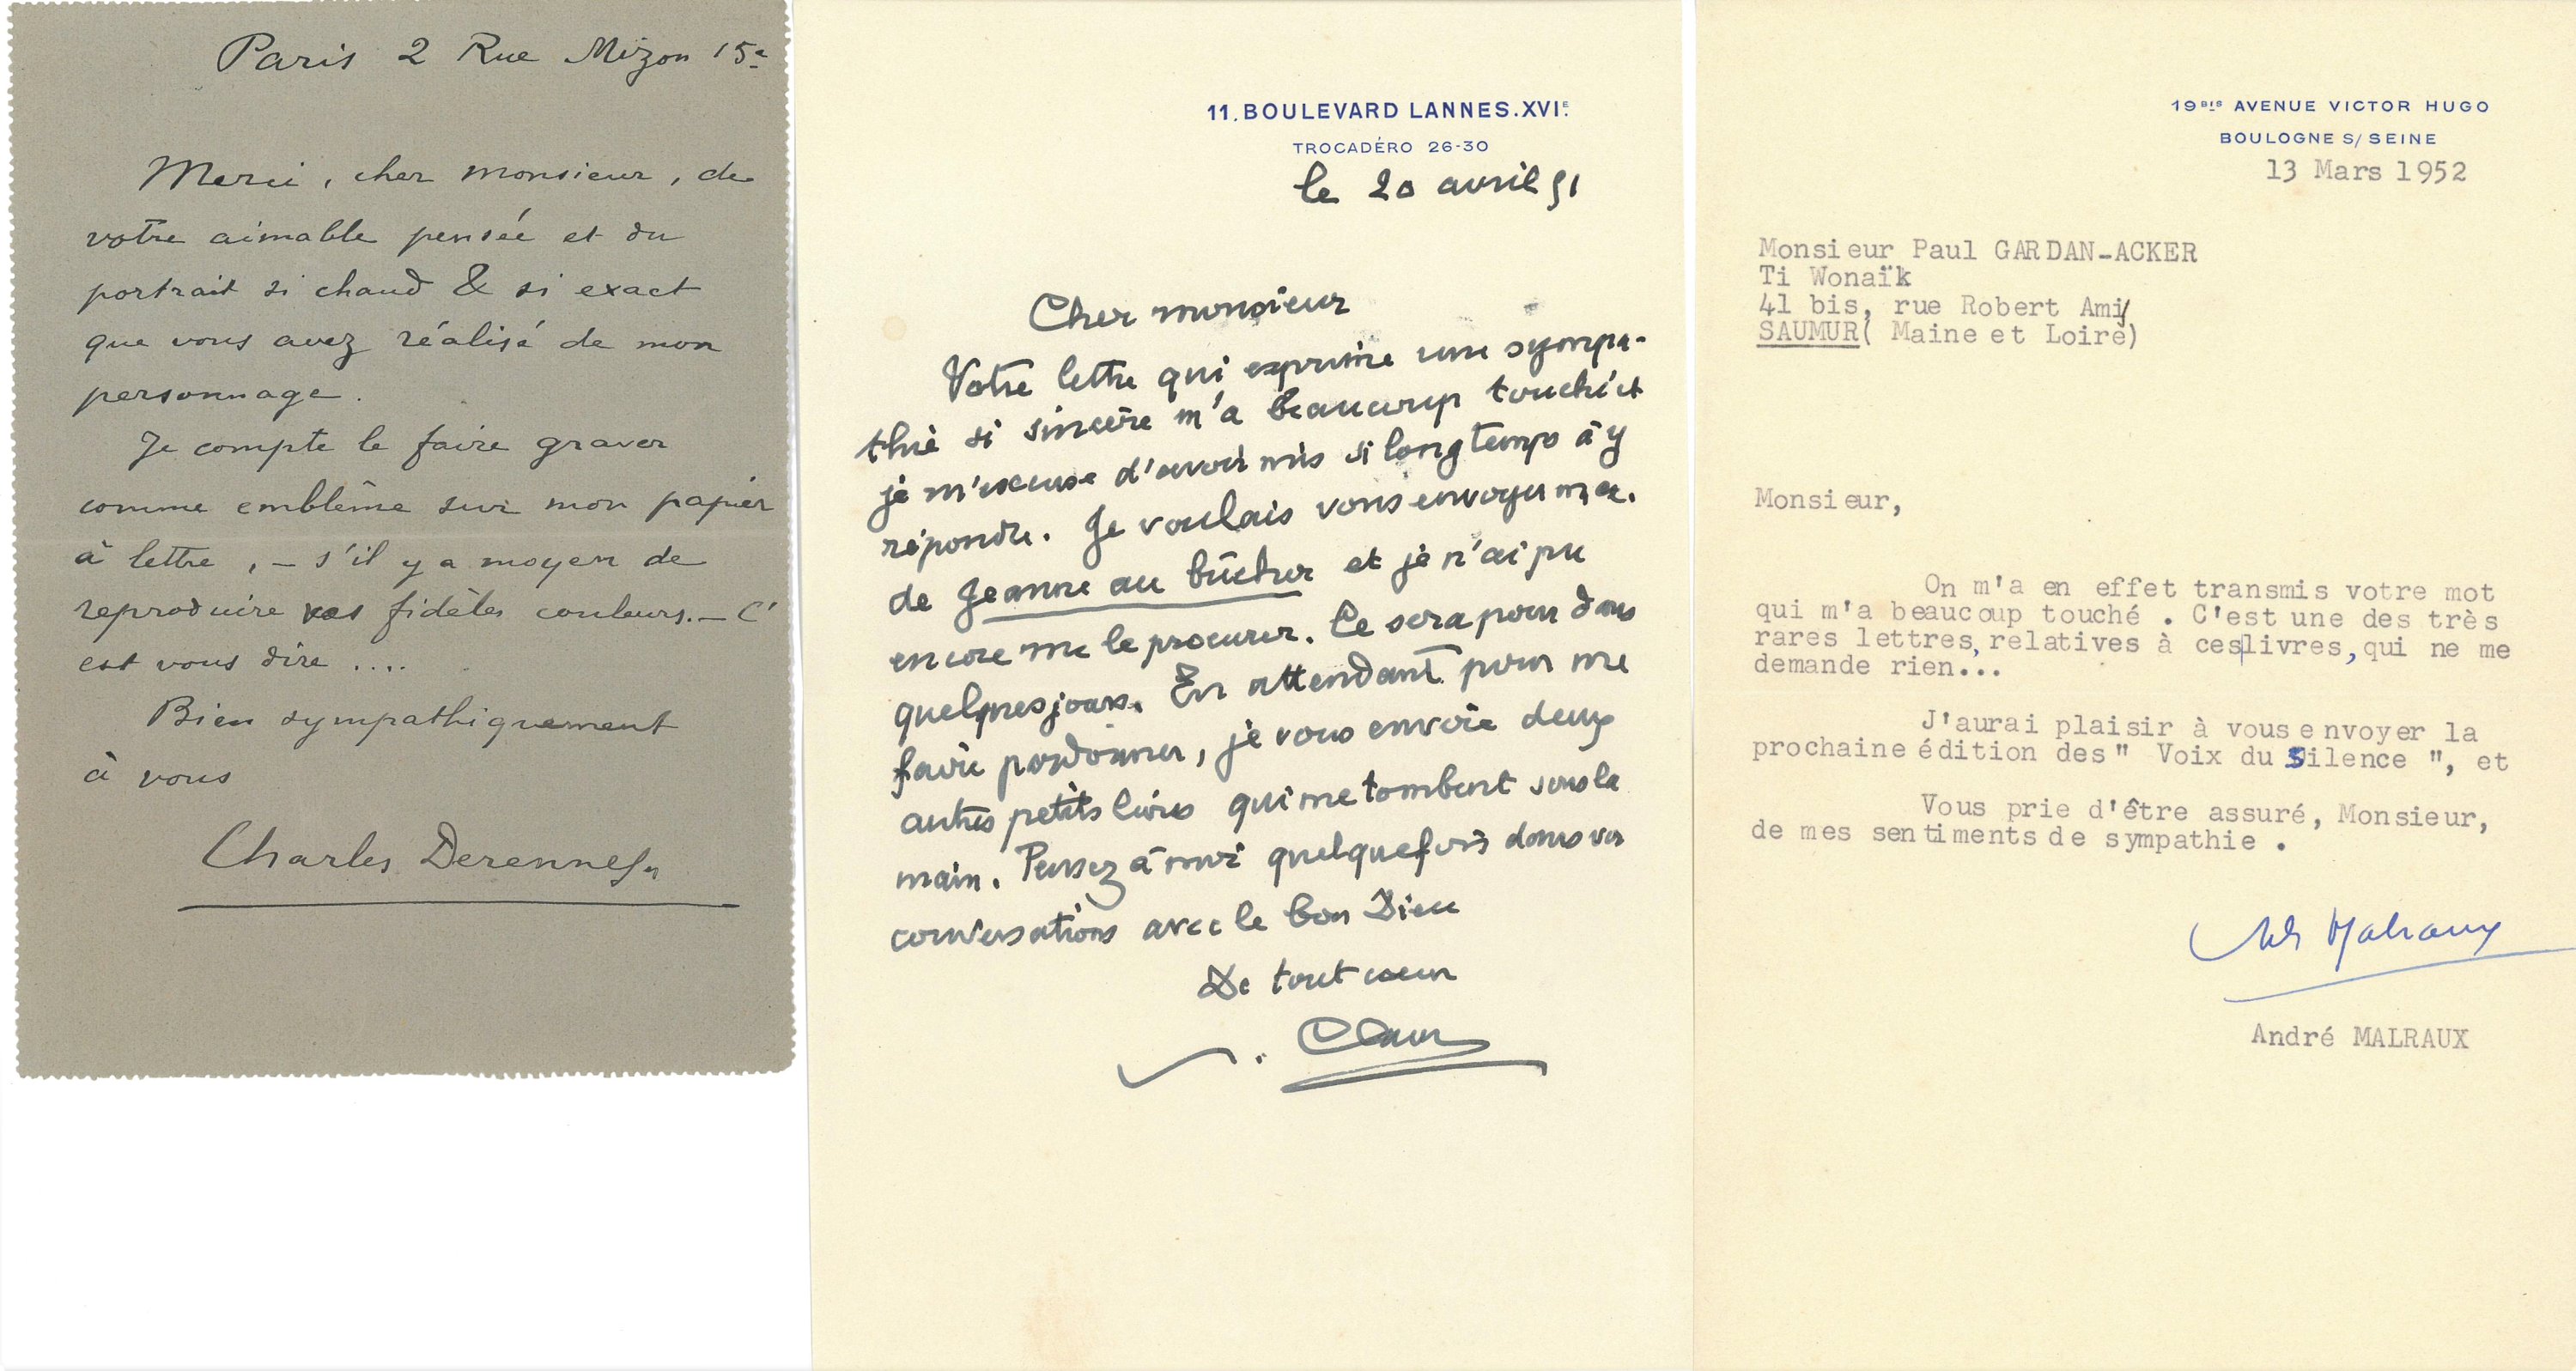 Paris 2 Rue Mizon 15e
Merci, cher monsieur, de
votre aimable pensée et du
portrait si chaud & si exact
que vous avez réalisé de mon
personnage.
Je compte le faire graver
comme emblême sur mon papier
à lettre, – s'il y a moyen de
reproduire vos fidèles couleurs. – C'
est vous dire ....
Bien sympathiquement
à vous
Charles Derennes
11. BOULEVARD LANNES. XVIE.
TROCADÉRO 26-30
le 20 avril 51
Cher monsieur
Votre lettre qui exprime une sympa-
thie si sincère m'a beaucoup touché et
je m'excuse d'avoir mis si longtemps à y
répondre. Je voulais vous envoyer
de Jeanne au bûcher et je n'ai pu
encore me le procurer. Ce sera pour dans
quelques jours. En attendant pour me
faire pardonner, je vous envoie deux
autres petits livres qui me tombent sous la
main. Pensez à moi quelquefois dans vos
conversations avec le bon Dieu
De tout cœur
19BIS AVENUE VICTOR HUGO
BOULOGNE S/ SEINE
13 Mars 1952
Monsieur Paul GARDAN-ACKER
Ti Wonaïk
41 bis, rue Robert Ami
SAUMUR( Maine et Loire)
Monsieur,
On m'a en effet transmis votre mot
qui m'a beaucoup touché . C'est une des très
rares lettres, relatives à ces livres, qui ne me
demande rien...
J'aurai plaisir à vous envoyer la
prochaine édition des " Voix du Silence ", et
Vous prie d'être assuré, Monsieur,
de mes sentiments de sympathie .
Malraux
André MALRAUX